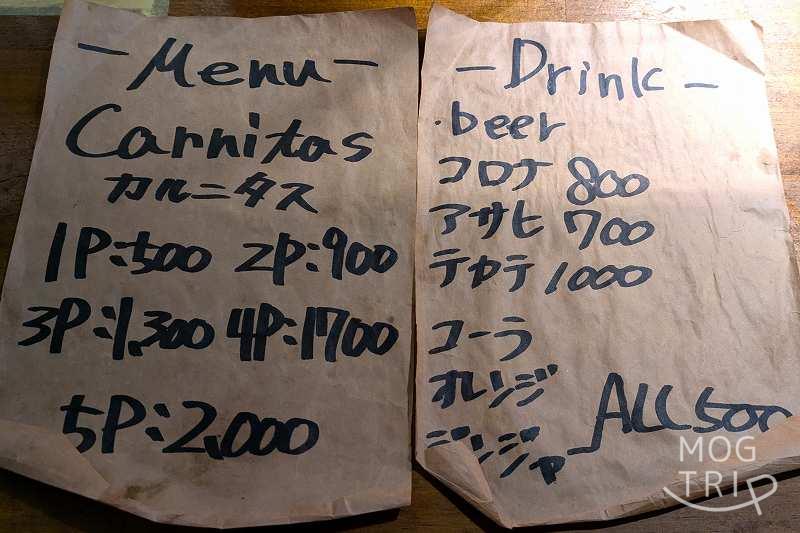 -Menu-
Carnitas
カルニタス
1P:500 2P:900
3P:1,300 4P:1700
5P:2,000
-Drink-
・beer
コロナ 800
アサヒ 700
テカテ 1000
コーラ
オレンジ
ジンジャー ALL500
MOG
TRIP